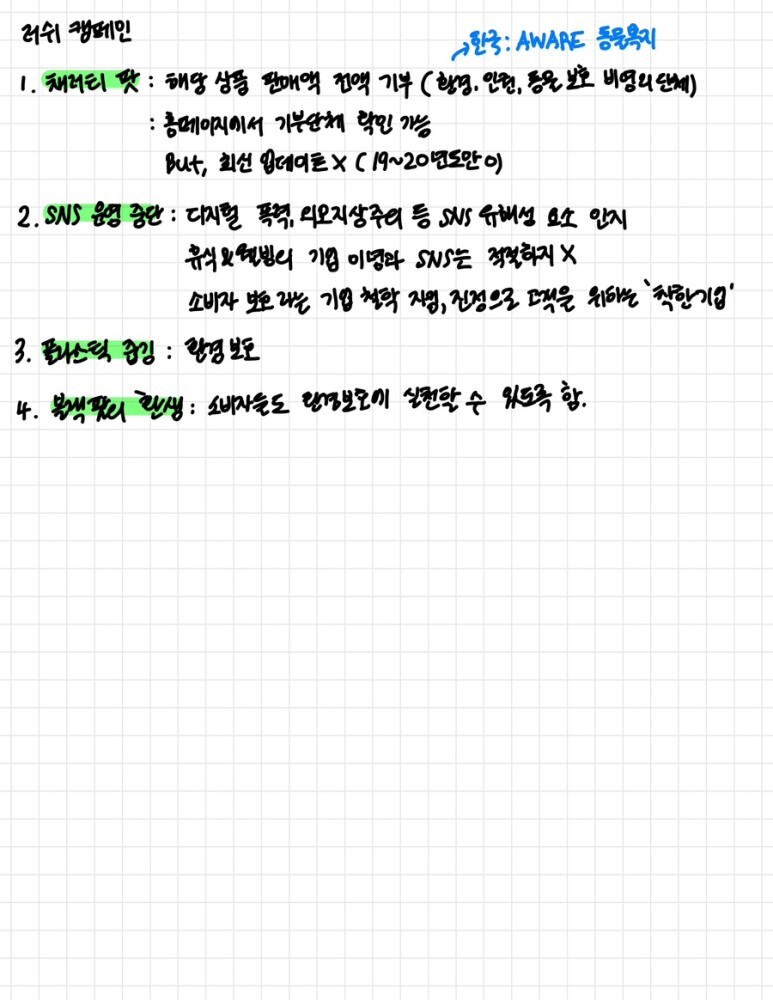 러쉬 캠페인
→한국: AWARE 동물복지
1. 채러티 팟 : 해당 상품 판매액 전액 기부 (환경, 인권, 동물 보호 비영리단체)
: 홈페이지에서 기부단체 확인 가능
But, 최신 업데이트 X (19~20년도만 O)
2. SNS 운영 중단 : 디지털 폭력, 외모지상주의 등 SNS 유해성 요소 인지
휴식&웰빙의 기업 이념과 SNS는 적절하지 X
소비자 보호라는 기업 철학 지염, 진정으로 고객을 위하는 '착한기업'
3. 플라스틱 줍깅 : 환경보호
4. 블랙팟의 환생 : 소비자들도 환경보호에 실천할 수 있도록 함.